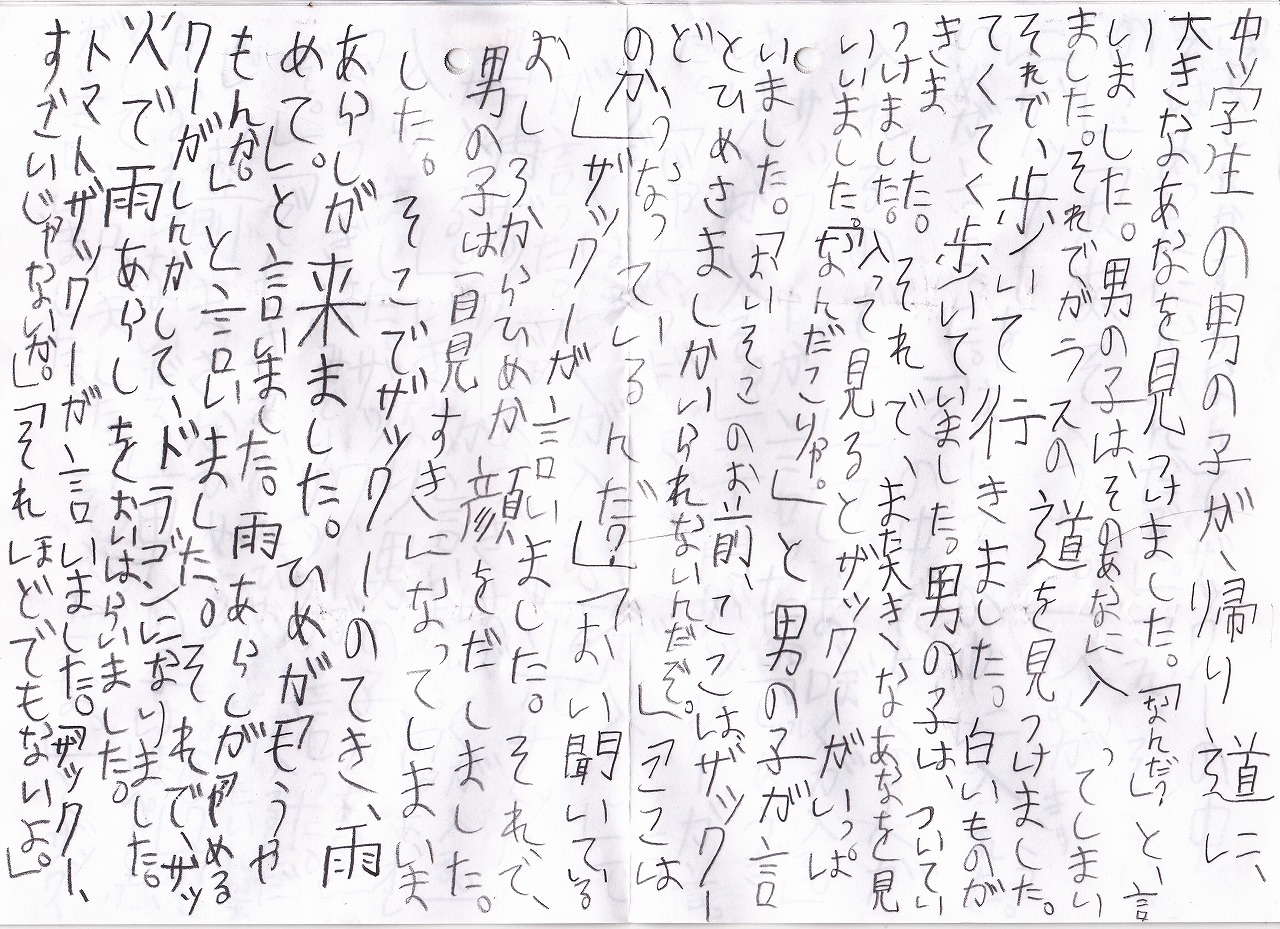 中学生の男の子が、帰り道に、
大きなあなを見つけました。「なんだろう」と、言
いました。男の子は、そのあなに入ってしまい
ました。それでガラスの道を見つけました。
それで、歩いて行きました。白いものが
てくてく歩いていました。男の子は、ついてい
きました。それで、また大きなあなを見
つけました。入って見るとザックーがいっぱ
いいました。「なんだこりゃ。」と男の子が言
いました。「おいそこのお前、ここはザックー
とひめさましかいられないんだぞ。」「ここは
ど
のか、うなっているんだ?」「おい聞いている
のか」ザックーが言いました。それで、
おしろからひめが顔をだしました。
男の子は一目見すきになってしまいま
した。そこでザックーのてき、雨
あらしが来ました。ひめが「もうや
めて。」と言いました。雨あらしが「やめる
もんか。」と、言いました。それで、ザッ
クーがしんかして、ドラゴンになりました。
火で雨あらしをおいはらいました。
トマトザックーが言いました。「ザックー、
すごいじゃないか。」「それほどでもないよ。」